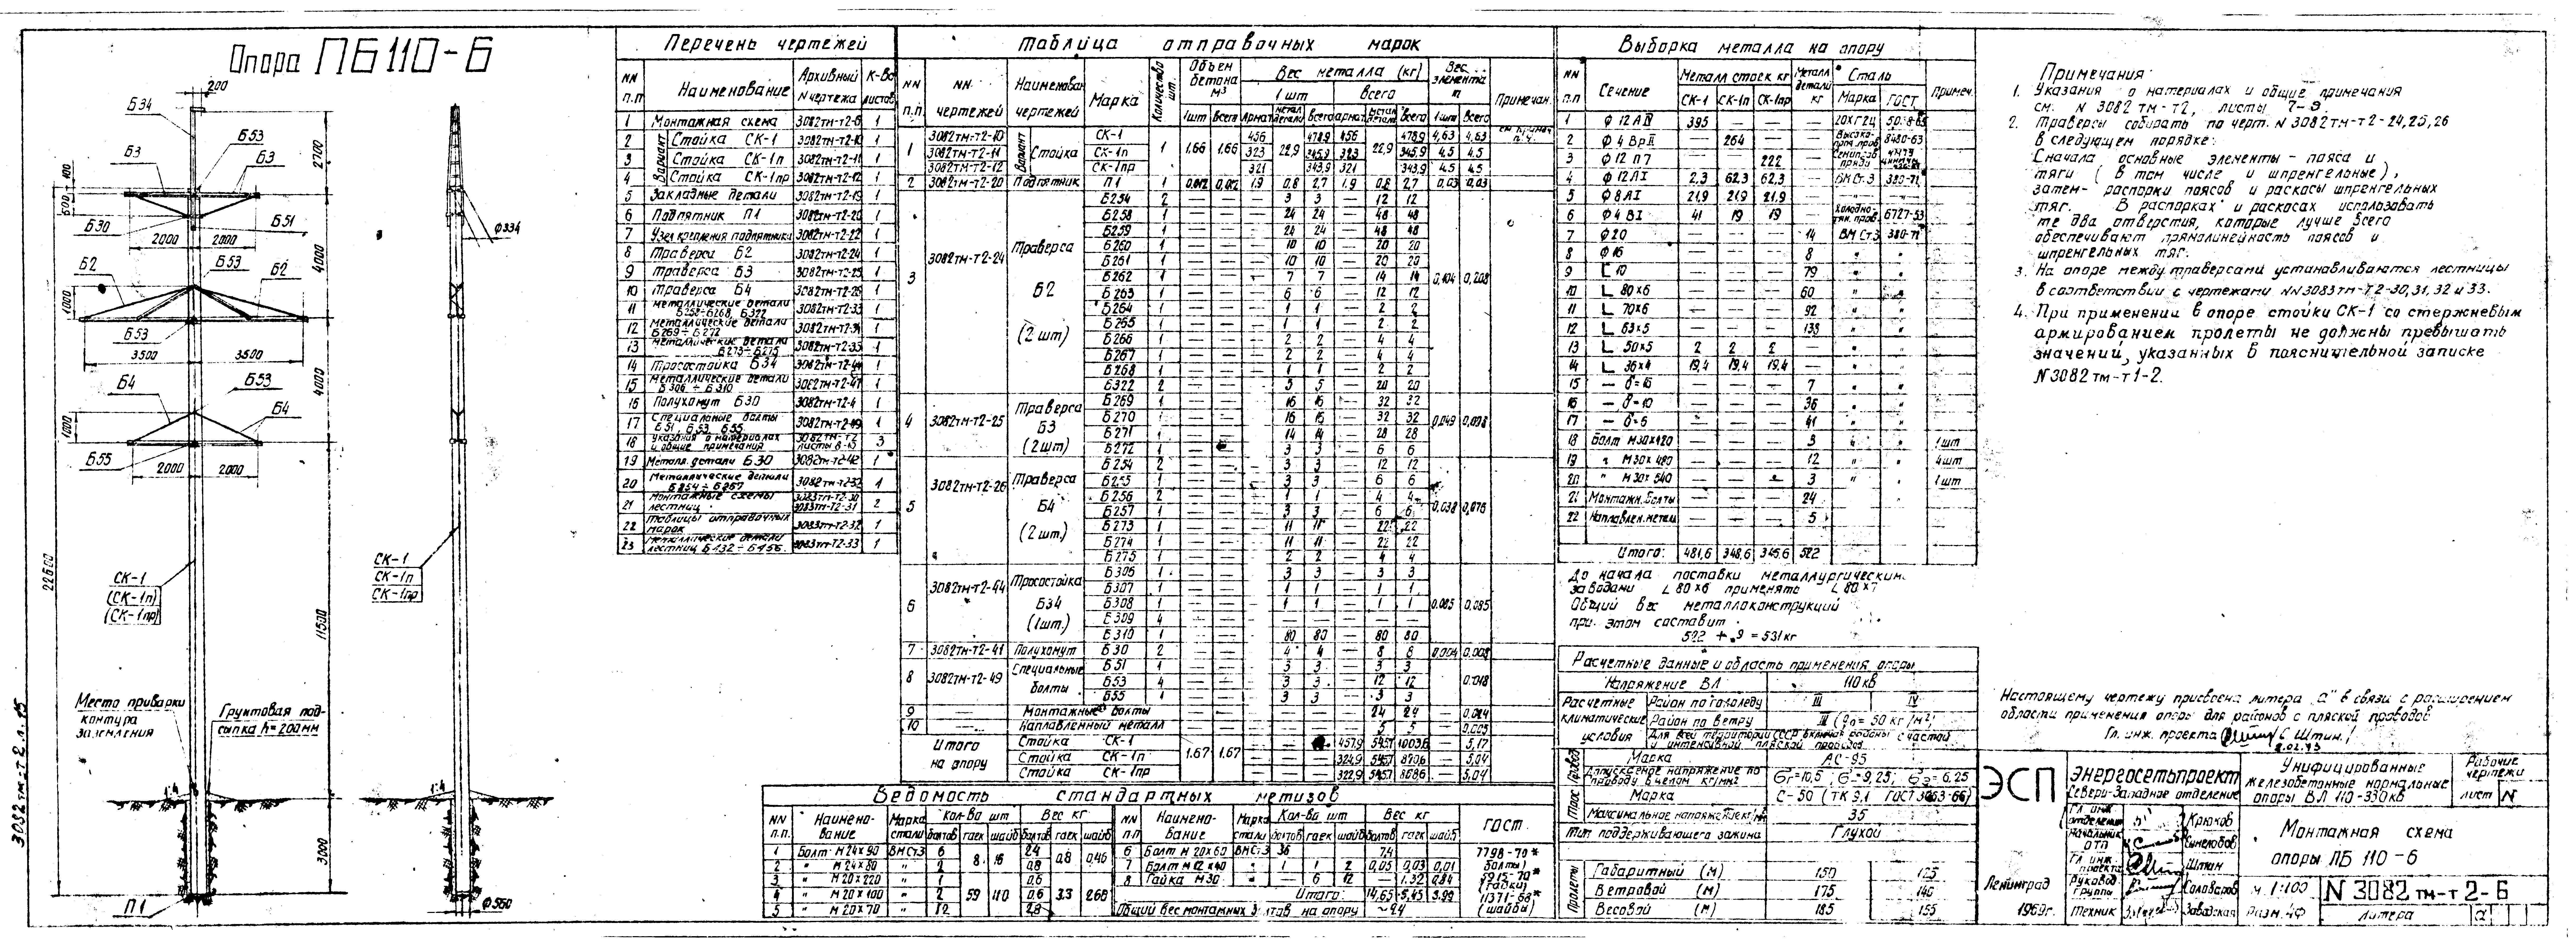 Опора ПБ110-6
200
Б34
Б53
Б3
Б3
2700
400
600
Б30
Б51
2000
2000
ф334
4000
Б2
Б53
Б2
1000
Б53
3500
3500
Б4
Б53
4000
1000
Б4
Б55
2000
2000
22600
СК-1
(СК-1п)
(СК-1пр)
СК-1
СК-1п
СК-1пр
11500
Место приварки
контура
заземления
Грунтовая под-
сыпка h=200мм
1:4
1:4
3000
П1
ф560
3082тм-т2 л.15
Перечень чертежей
NN п.п Наименование Архивный N чертежа К-во листов
1 Монтажная схема 3082тм-т2-6 1
Вариант
2 Стойка СК-1 3082тм-т2-10 1
3 Стойка СК-1п 3082тм-т2-11 1
4 Стойка СК-1пр 3082тм-т2-12 1
5 Закладные детали 3082тм-т2-19 1
6 Подпятник П1 3082тм-т2-20 1
7 Узел крепления подпятника 3082тм-т2-22 1
8 Траверса Б2 3082тм-т2-24 1
9 Траверса Б3 3082тм-т2-25 1
10 Траверса Б4 3082тм-т2-26 1
11 Металлические детали Б258÷Б268, Б322 3082тм-т2-33 1
12 Металлические детали Б269÷Б272 1
13 Металлические детали Б273÷Б275 3082тм-т2-35 1
14 Тросостойка Б34 3082тм-т2-44 1
15 Металлические детали Б306÷Б310 3082тм-т2-47 1
16 Полухомут Б30 1
17 Специальные болты Б51, Б53, Б55 3082тм-т2-49 1
18 Указания о материалах и общие примечания 3082тм-т2 3
19 Металл. детали Б30 3082тм-т2-42 1
20 Металлические детали Б254÷Б257 3082тм-т2-32 1
21 Монтажные схемы лестниц 3083тм-т2-30 3083тм-т2-31 2
22 Таблицы отправочных марок 3083тм-т2-32 1
23 Металлические детали лестниц Б132÷Б156 3083тм-т2-33 1
Таблица отправочных марок
NN п.п. NN чертежей Наименован. чертежей Марка Количество шт. Объем бетона м³ Вес металла (кг) Вес элемента т Примечан.
1 шт Всего
1шт Всего Армат. металл детали Всего Армат. металл детали Всего 1шт Всего
1 3082тм-т2-10 Вариант Стойка СК-1 1 1,66 1,66 456 22,9 478,9 456 22,9 478,9 4,63 4,63
3082тм-т2-11 СК-1п 323 345,9 323 345,9 4,5 4,5
3082тм-т2-12 СК-1пр 321 343,9 321 343,9 4,5 4,5
2 3082тм-т2-20 Подпятник П1 1 0,012 0,012 1,9 0,8 2,7 1,9 0,8 2,7 0,03 0,03
3 3082тм-т2-24 Траверса Б2 (2 шт) 0,104 0,208
Б254 2 — 3 3 — 12 12
Б258 1 — 24 24 — 48 48
Б259 1 — 24 24 — 48 48
Б260 1 — 10 10 — 20 20
Б261 1 — 10 10 — 20 20
Б262 1 — 7 7 — 14 14
Б263 1 — 6 6 — 12 12
Б264 1 — 1 1 — 2 2
Б265 1 — 1 1 — 2 2
Б266 1 — 2 2 — 4 4
Б267 1 — 2 2 — 4 4
Б268 1 — 1 1 — 2 2
Б322 2 — 5 5 — 20 20
4 3082тм-т2-25 Траверса Б3 (2 шт) 0,049 0,098
Б269 1 — 16 16 — 32 32
Б270 1 — 16 16 — 32 32
Б271 1 — 14 14 — 28 28
Б272 1 — 3 3 — 6 6
5 3082тм-т2-26 Траверса Б4 (2 шт.) 0,038 0,076
Б254 2 — 3 3 — 12 12
Б255 1 — 3 3 — 6 6
Б256 2 — 1 1 — 4 4
Б257 1 — 3 3 — 6 6
Б273 1 — 11 11 — 22 22
Б274 1 — 11 11 — 22 22
Б275 1 — 2 2 — 4 4
6 3082тм-т2-44 Тросостойка Б34 (1шт.) 0,085 0,085
Б306 1 — 3 3 — 3 3
Б307 1 — 1 1 — 1 1
Б308 1 — 1 1 — 1 1
Б309 4 — — — — — —
Б310 1 — 80 80 — 80 80
7 3082тм-т2-41 Полухомут Б30 2 — 4 4 — 8 8 0,004 0,008
8 3082тм-т2-49 Специальные болты 0,018
Б51 1 — 3 3 — 3 3
Б53 4 — 3 3 — 12 12
Б55 1 — 3 3 — 3 3
9 Монтажные болты 24 24 — 0,024
10 Наплавленный металл 5 5 — 0,005
Итого на опору 1,67 1,67
Стойка СК-1 457,9 545,7 1003,6 — 5,17
Стойка СК-1п 324,9 545,7 870,6 — 5,04
Стойка СК-1пр 322,9 545,7 868,6 — 5,04
Ведомость стандартных метизов
NN п.п. Наименование Марка стали Кол-во шт Вес кг
болтов гаек шайб болтов гаек шайб
1 Болт М24×90 ВМСт3 6 2,4
2 " М24×80 " 2 8 16 0,8 0,8 0,46
3 " М20×220 " 1 0,6
4 " М20×100 " 2 59 110 0,6 3,3 2,68
5 " М20×70 " 12 2,8
6 Болт М20×60 ВМСт3 36 7,4
7 Болт М12×40 " 1 1 2 0,05 0,03 0,01
8 Гайка М30 " — 6 12 — 1,32 0,84
Итого: 14,65 5,45 3,99
Общий вес монтажных болтов на опору ~24
ГОСТ
7798-70*
(болты)
5915-70*
(гайки)
11371-68*
(шайбы)
Выборка металла на опору
NN п.п Сечение Металл стоек кг Металл детали кг Сталь Примеч.
СК-1 СК-1п СК-1пр Марка ГОСТ
1 ф12АIV 395 — — — 20ХГ2Ц
2 ф4ВрII — 264 — — 8480-63
3 ф12П7 — — 222 —
4 ф12АI 2,3 62,3 62,3 — ВМСт.3 380-71
5 ф8АI 21,9 21,9 21,9 —
6 ф4ВI 41 19 19 — 6727-53
7 ф20 — — — 14 ВМСт3 380-71
8 ф16 — — — 8 " "
9 [10 — — — 79 " "
10 L 80×6 — — — 60 " "
11 L 70×6 — — — 92 " "
12 L 63×5 — — — 138 " "
13 L 50×5 2 2 2 — "
14 L 36×4 19,4 19,4 19,4 — "
15 — δ=16 — — — 7 "
16 — δ=10 — — — 36 "
17 — δ=6 — — — 41 "
18 Болт М30×420 — — — 3 " " 1шт
19 " М30×480 — — — 12 " " 4шт
20 " М30×540 — — — 3 " " 1шт
21 Монтажн. болты — — — 24
22 Наплавлен. метал. — — — 5
Итого: 481,6 348,6 345,6 522
До начала поставки металлургическими
заводами L 80×6 применять L 80×7
Общий вес металлоконструкций
при этом составит
522 + 9 = 531кг
Расчетные данные и область применения опоры
Напряжение ВЛ 110 кв
Расчетные климатические условия
Район по гололеду III IV
Район по ветру III (q₀= 50 кг/м²)
Для всей территории СССР включая районы с частой
и интенсивной пляской проводов
Провод Марка АС-95
Допускаемое напряжение по проводу в целом кг/мм² бг=10,5; б-=9,25; бэ=6,25
Трос Марка С-50 (ТК 9,1 ГОСТ 3063-66)
Максимальное напряжение 35
Тип поддерживающего зажима Глухой
Пролеты
Габаритный (м) 150 125
Ветровой (м) 175 140
Весовой (м) 185 155
Примечания:
1. Указания о материалах и общие примечания
см. N 3082 тм-т2, листы 7-9.
2. Траверсы собирать по черт. N 3082тм-т2-24,25,26
в следующем порядке:
Сначала основные элементы - пояса и
тяги (в том числе и шпренгельные),
затем- распорки поясов и раскосы шпренгельных
тяг. В распорках и раскосах использовать
те два отверстия, которые лучше всего
обеспечивают прямолинейность поясов и
шпренгельных тяг.
3. На опоре между траверсами устанавливаются лестницы
в соответствии с чертежами NN3083тм-т2-30,31,32 и 33.
4. При применении в опоре стойки СК-1 со стержневым
армированием пролеты не должны превышать
значений, указанных в пояснительной записке
N3082 тм-т1-2.
Настоящему чертежу присвоена литера „а" в связи с расширением
области применения опоры для районов с пляской проводов
Гл. инж. проекта (Штин)
ЭСП
Энергосетьпроект
Северо-Западное отделение
Унифицированные
железобетонные нормальные
опоры ВЛ 110-330кв
Рабочие чертежи
лист N
Гл. инж. отделения Крюков
Начальник ОТП Синелобов
Гл. инж. проекта Штин
Руковод. группы
Техник Заводская
Ленинград
1969г.
Монтажная схема
опоры ПБ 110-6
м. 1:100
Разм. 4Ф
N 3082 тм-т 2-6
литера а